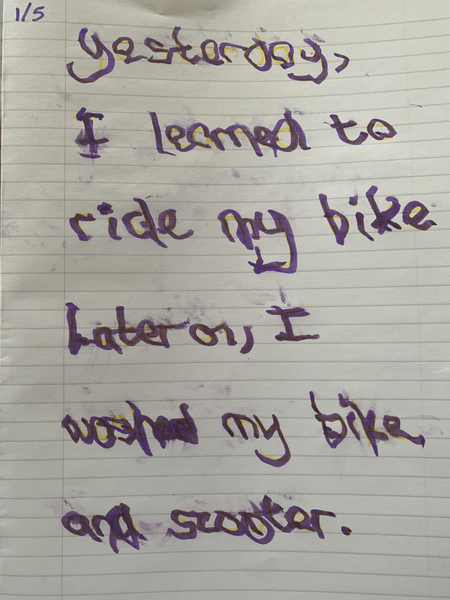 1/5
yesterday,
I learned to
ride my bike
Later on, I
washed my bike
and scooter.